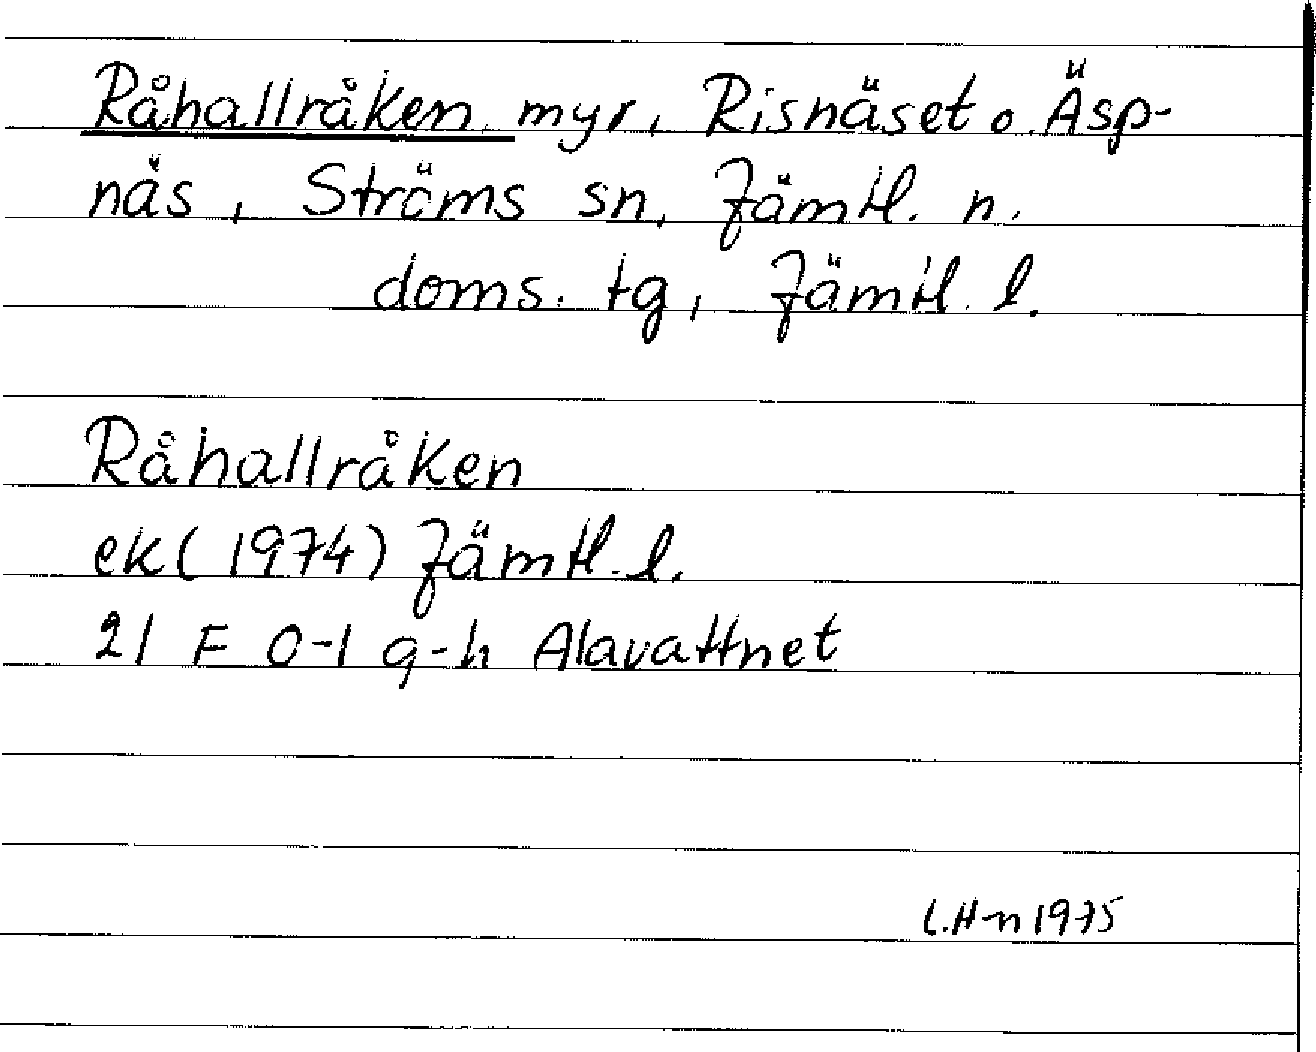 Råhallråken, myr, Risnäset o. Äsp-
näs, Ströms sn, Jämtl. n.
doms. tg, Jämtl. l.
Råhallråken
ek (1974) Jämtl. l.
21 F 0-1 g-h Alavattnet
L.H-n 1975